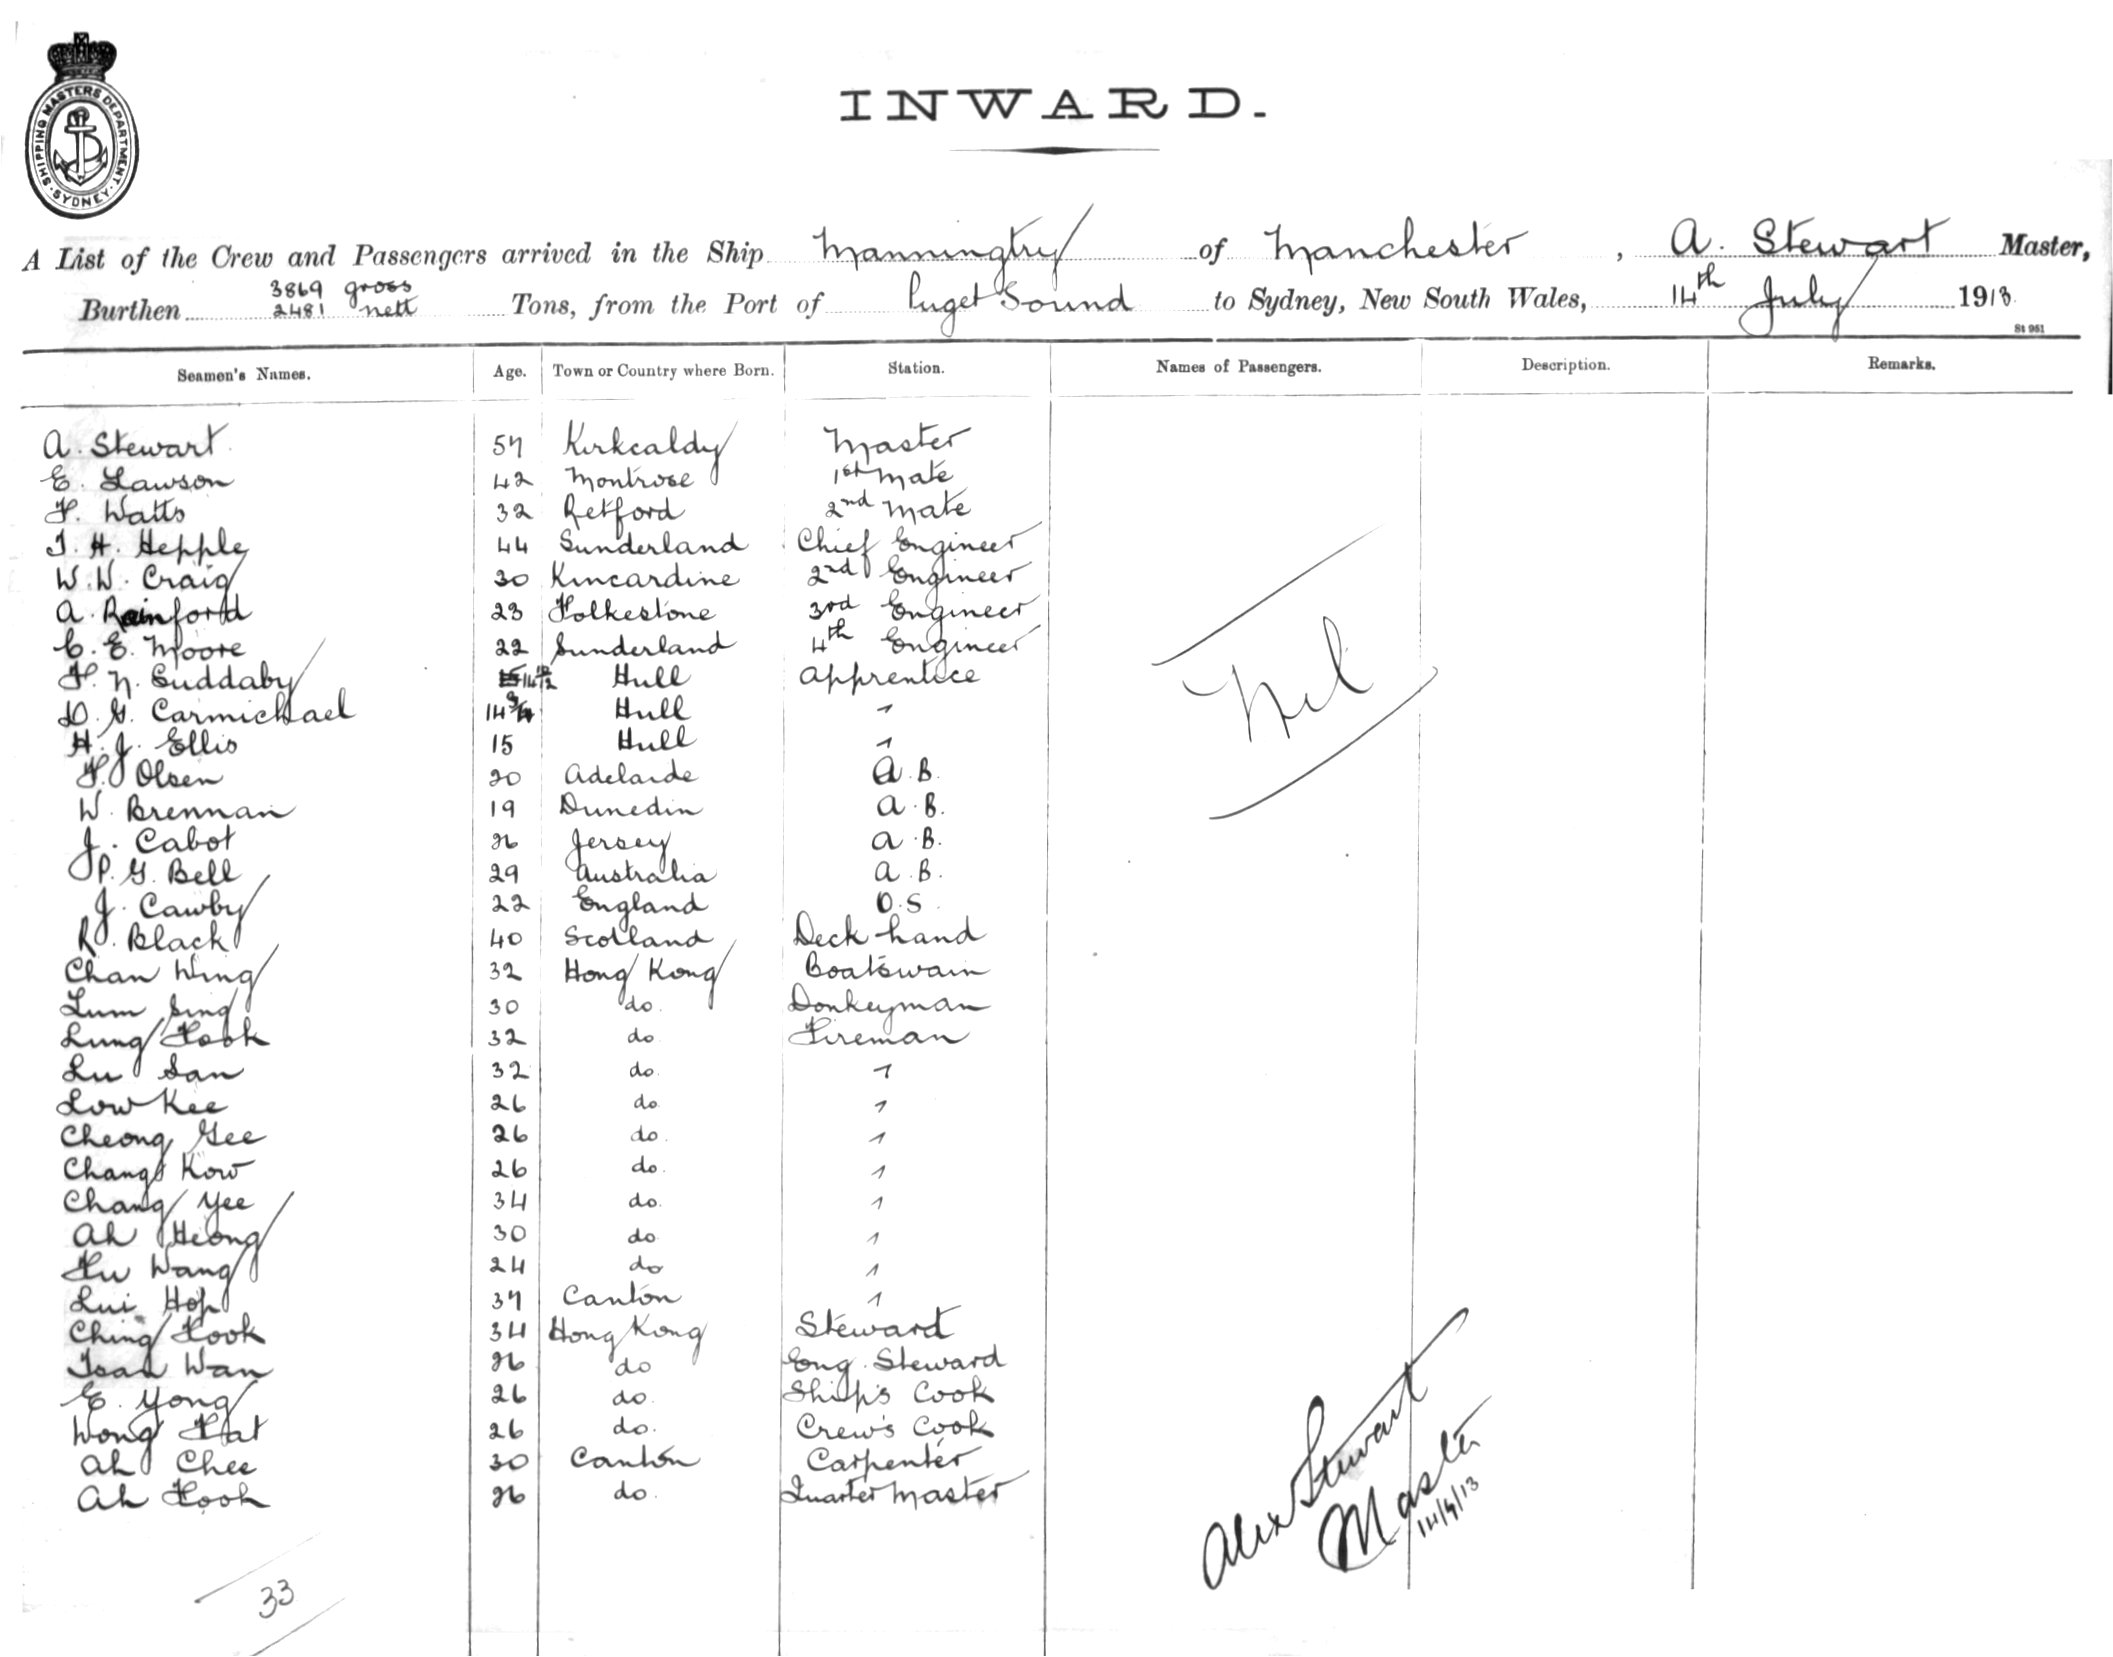 SHIPPING MASTERS DEPARTMENT · SYDNEY ·
INWARD.
A List of the Crew and Passengers arrived in the Ship Manningtry of Manchester, A. Stewart Master,
Burthen 3869 gross 2481 nett Tons, from the Port of Puget Sound to Sydney, New South Wales, 14th July 1913
St 951
Seamen's Names. Age. Town or Country where Born. Station. Names of Passengers. Description. Remarks.
A. Stewart 57 Kirkcaldy Master
E. Lawson 42 Montrose 1st Mate
F. Watts 32 Retford 2nd Mate
T. H. Hepple 44 Sunderland Chief Engineer
W. W. Craig 30 Kincardine 2nd Engineer
A. Rainford 23 Folkestone 3rd Engineer
C. E. Moore 22 Sunderland 4th Engineer
F. N. Suddaby 14 1/2 Hull Apprentice
D. G. Carmichael 14 3/4 Hull "
H. J. Ellis 15 Hull "
F. Olsen 20 Adelaide A.B.
W. Brennan 19 Dunedin A.B.
J. Cabot 26 Jersey A.B.
P. G. Bell 29 Australia A.B.
J. Cawby 22 England O.S.
R. Black 40 Scotland Deck hand
Chan Wing 32 Hong Kong Boatswain
Lum Sing 30 do. Donkeyman
Lung Fook 32 do Fireman
Lu San 32 do. "
Low Kee 26 do "
Cheong Gee 26 do. "
Chang Kow 26 do. "
Chang Yee 34 do. "
Ah Heong 30 do "
Fu Wang 24 do "
Lui Hop 37 Canton "
Ching Fook 34 Hong Kong Steward
Tsan Wan 26 do Eng. Steward
E. Yong 26 do. Ship's Cook
Wong Fat 26 do. Crew's Cook
Ah Chee 30 Canton Carpenter
Ah Fook 26 do. Quarter Master
Nil
Alex Stewart
Master
14/7/13
33